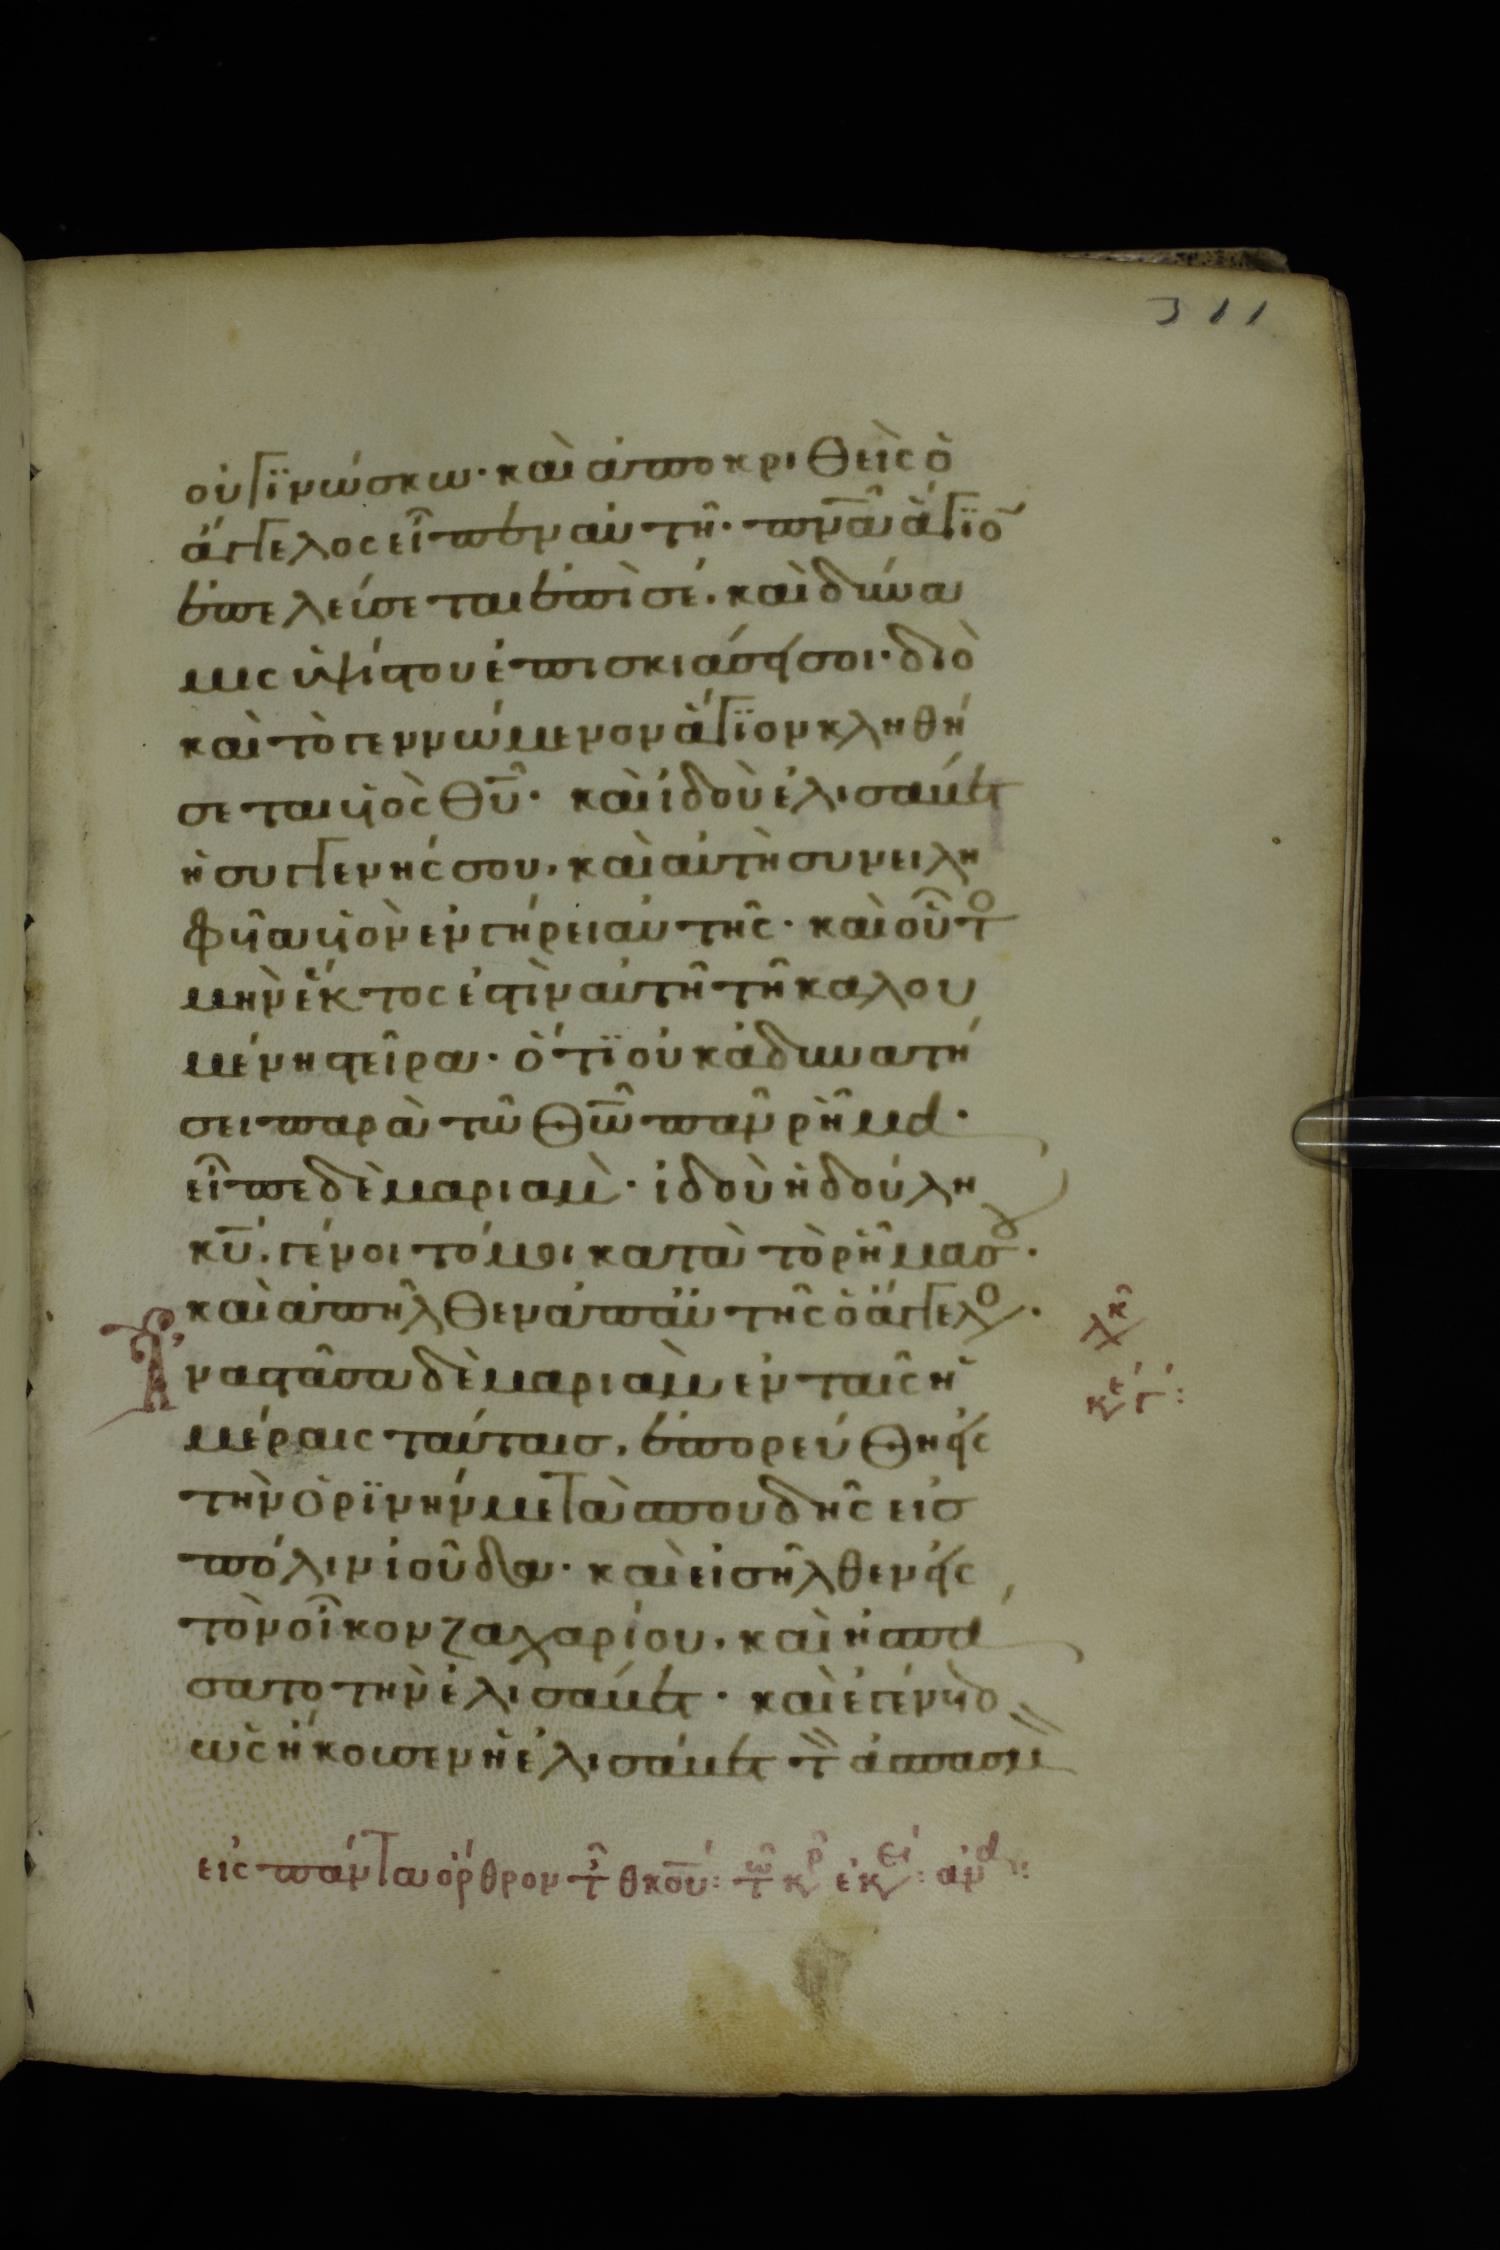 311
οὐ γϊνώσκω· καὶ ἀποκριθεὶς ὁ
ἄγγελος εἶπεν αὐτῆ· πνᾶ ἅγϊο
ἐπελεύσεται ἐπὶ σέ. καὶ δύνα
μις ὑψίστου ἐπισκιάσει σοι· διὸ
καὶ τὸ γεννώμενον ἅγϊον κληθή
σεται υἱὸς θῦ· καὶ ἰδοὺ ἐλισάβετ
ἡ συγγενής σου, καὶ αὐτὴ συνειλη
φυῖα υἱὸν ἐν γήρει αὐτῆς· καὶ οὗτο
μὴν ἕκτος ἐστὶν αὐτῆ τῆ καλου
μένη στείρα· ὅτϊ οὐκ ἀδυνατή
σει παρὰ τῶ θῶ πᾶν ρῆμα·
εἶπε δὲ μαριαμ· ἰδοὺ ἡ δούλη
κυ, γένοιτό μοι κατὰ τὸ ρῆμα σου·
καὶ ἀπῆλθεν ἀπ' αὐτῆς ὁ ἄγγελο·
Ἀναστᾶσα δὲ μαριαμ ἐν ταῖς ἡ
μέραις ταύταις, ἐπορεύθη εἰς
τὴν ὀρϊνὴν μετὰ σπουδῆς εἰς
πόλιν ἰούδα· καὶ εἰσῆλθεν εἰς
τὸν οἶκον ζαχαρίου, καὶ ἠσπά
σατο τὴν ἐλισάβετ· καὶ ἐγένετο
ὡς ἤκουσεν ἡ ἐλισάβετ τ ἀσπασμ
εἰς πάντα ὄρθρον τ θκου: τ κρ ἐκ